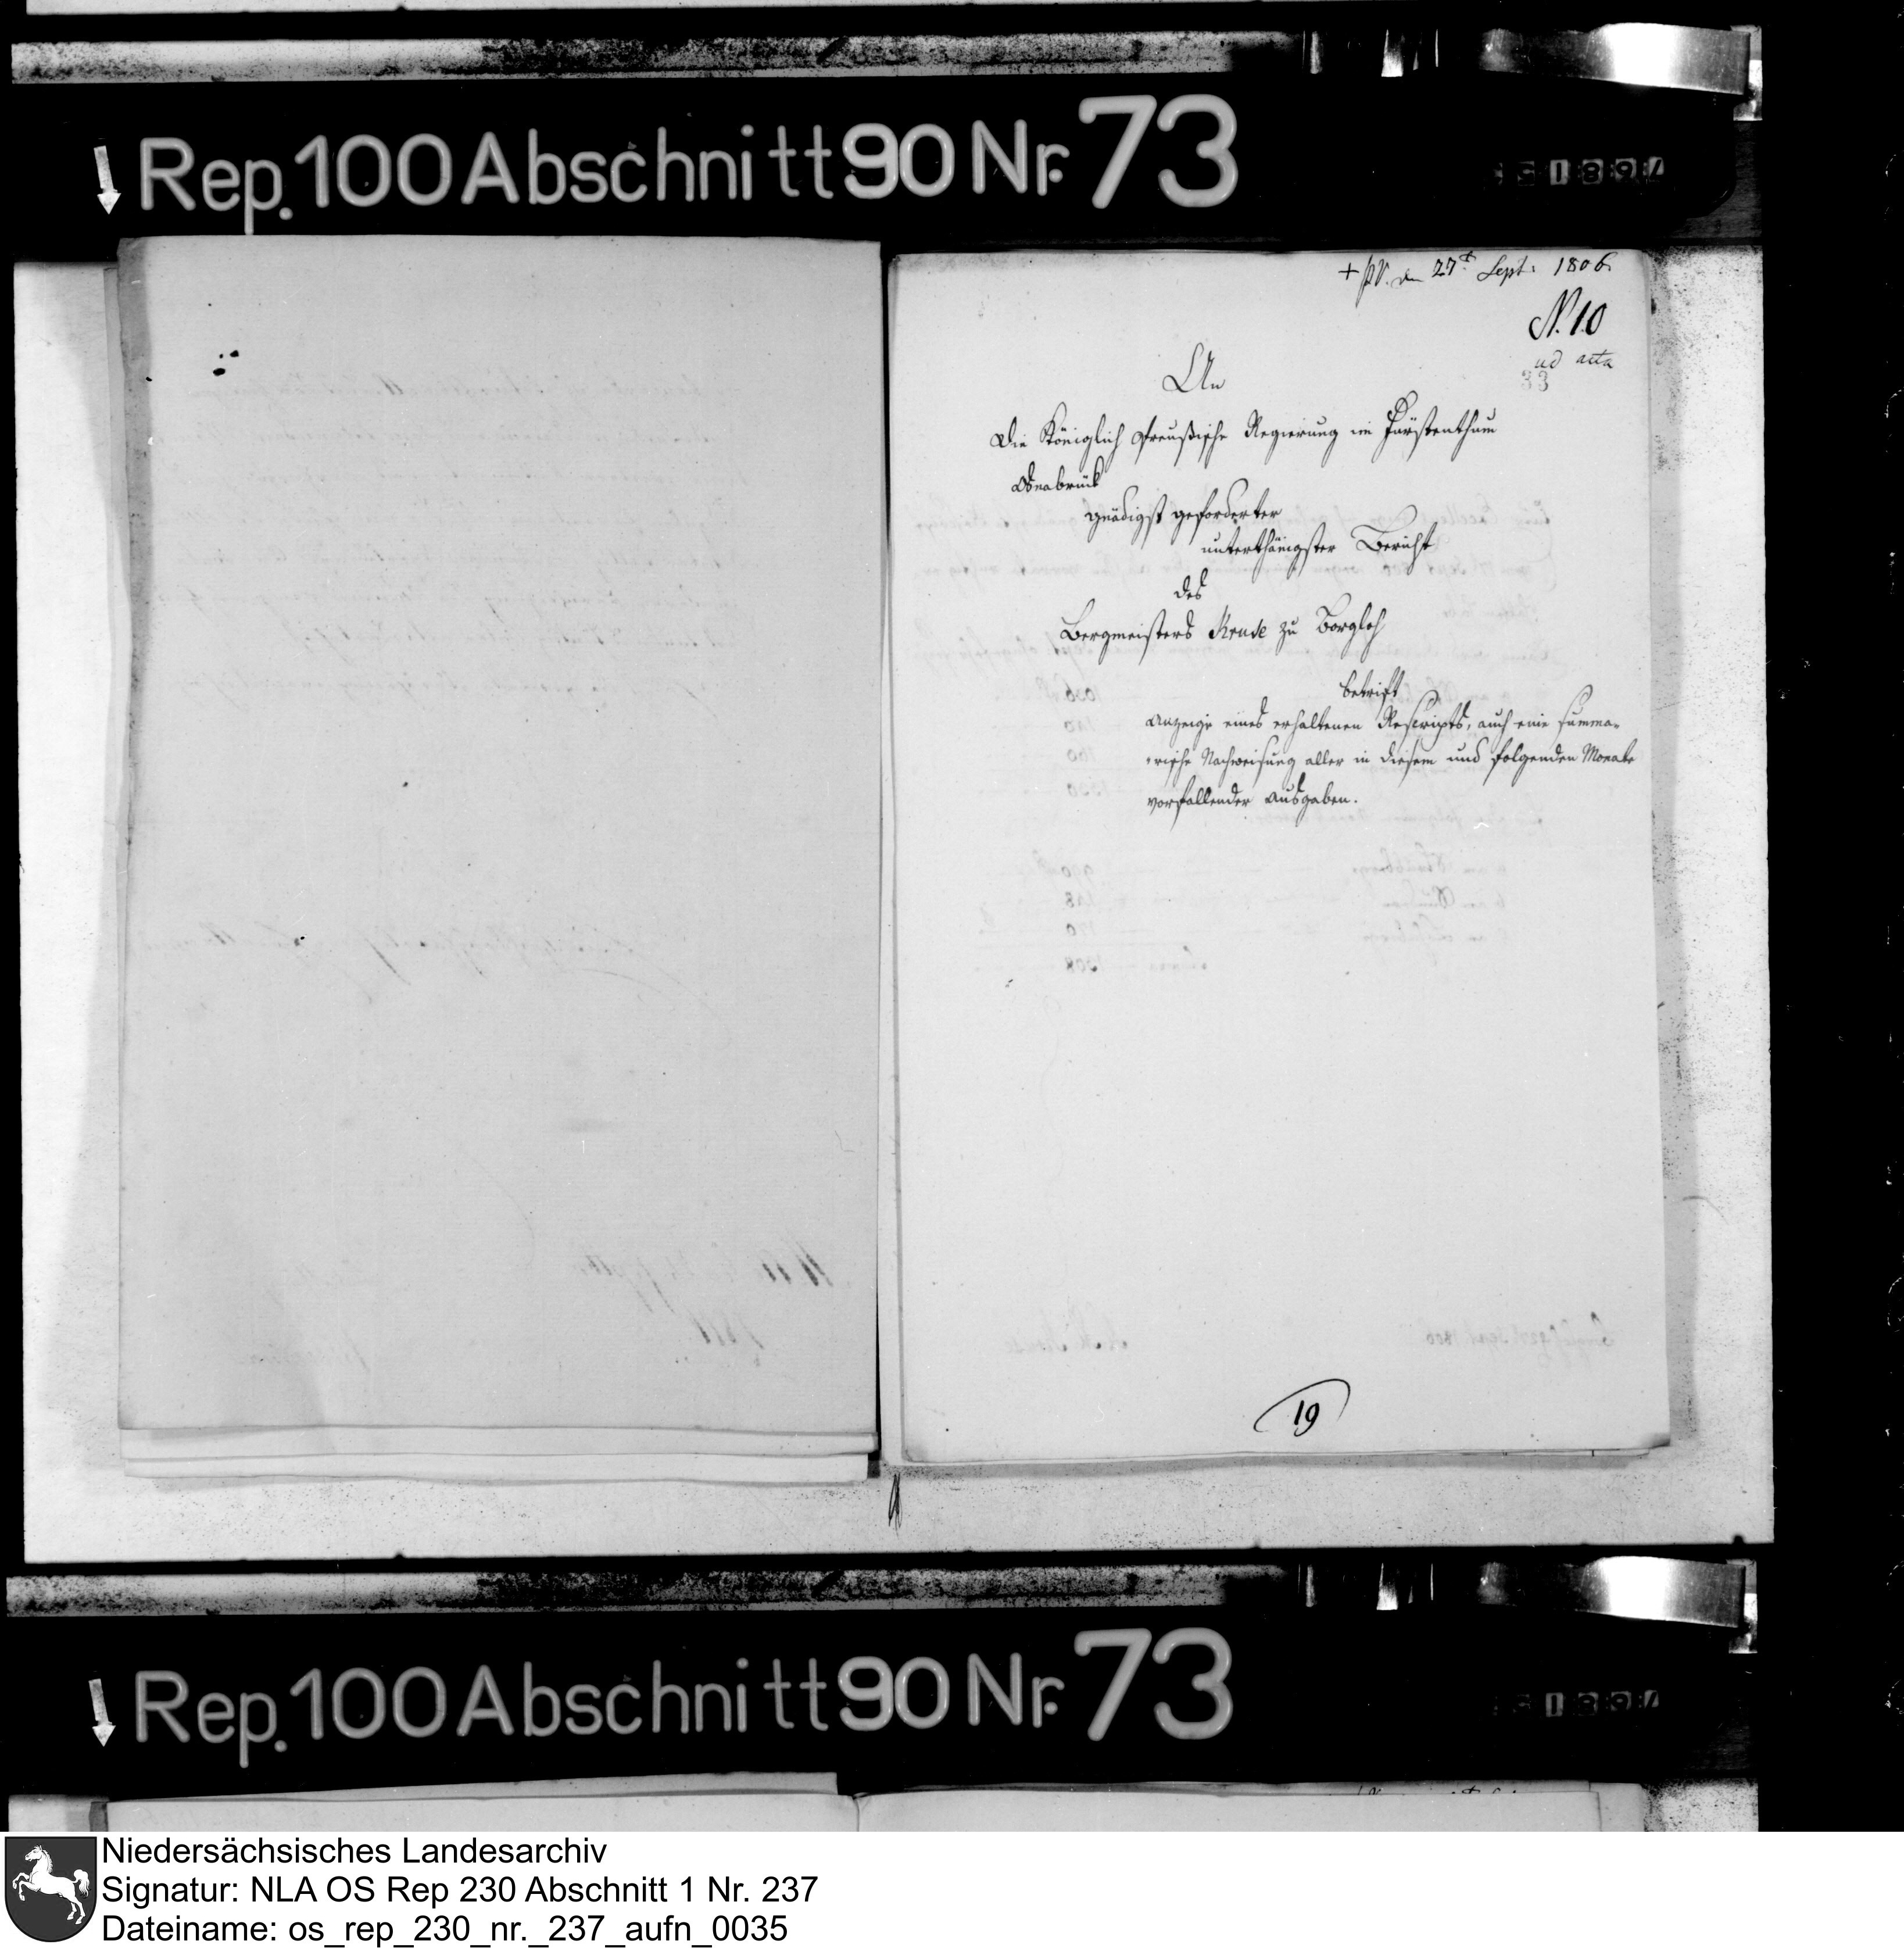 Rep. 100 Abschnitt 90 Nr. 73
+ pV. den 27t Sept: 1806.
N. 10
ad acta
33
An
die Königlich Preußische Regierung im Fürstenthum
Osnabrück
gnädigst geforderter
unterthänigster Bericht
des
Bergmeisters Kruse zu Borgloh
betrift
Anzeige eines erhaltenen Rescripts, auch eine summa-
rische Nachweisung aller in diesem und folgenden Monate
vorfallender Ausgaben.
19
Rep. 100 Abschnitt 90 Nr. 73
Niedersächsisches Landesarchiv
Signatur: NLA OS Rep 230 Abschnitt 1 Nr. 237
Dateiname: os_rep_230_nr._237_aufn_0035